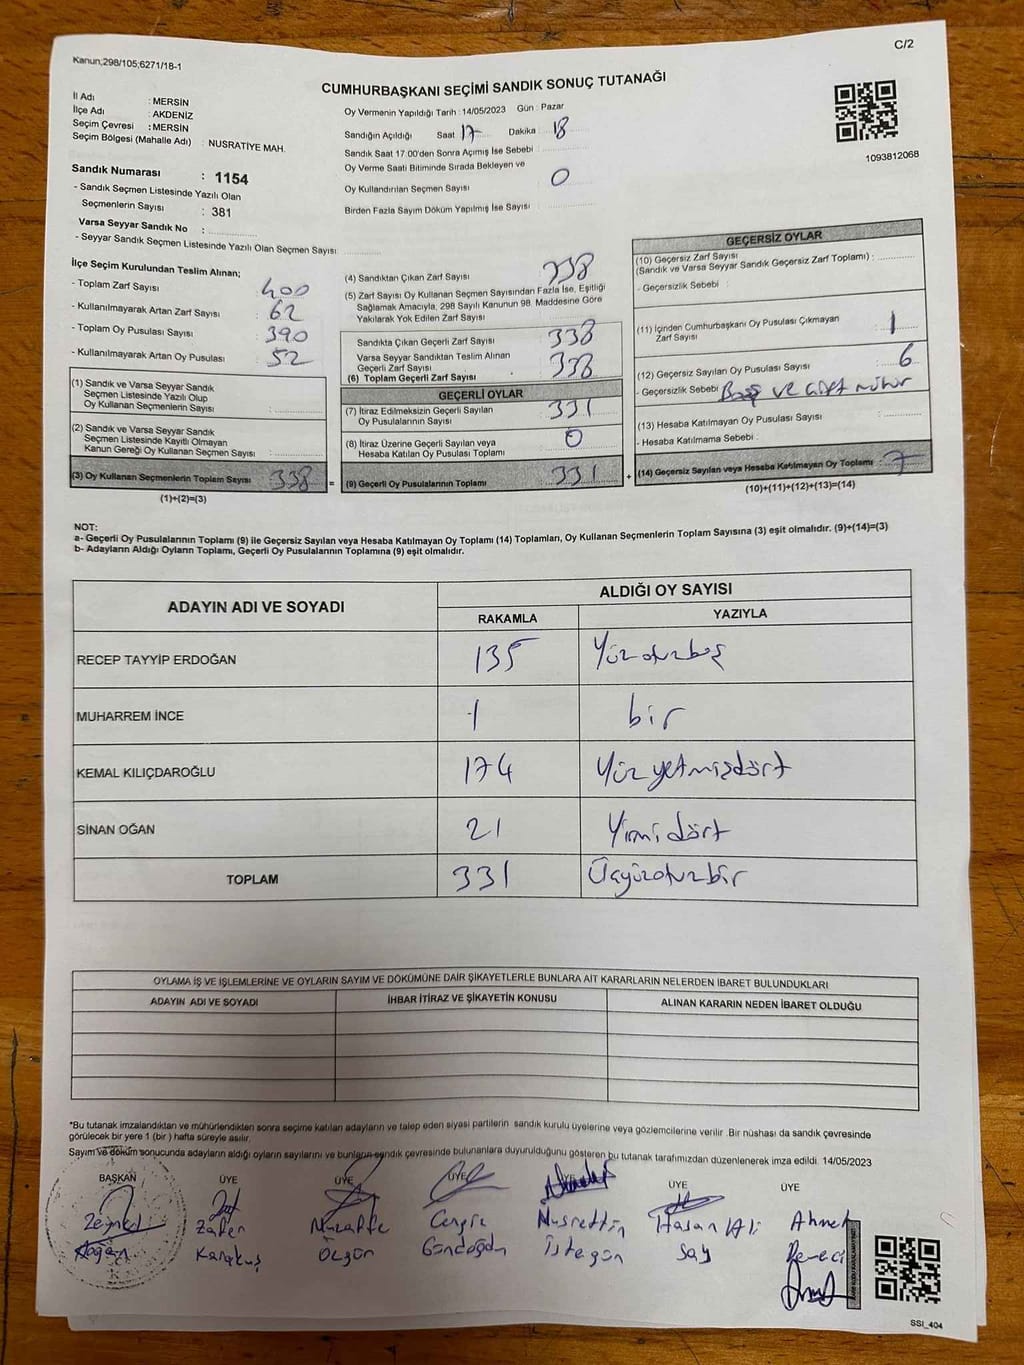 C/2
Kanun;298/105;6271/18-1
CUMHURBAŞKANI SEÇİMİ SANDIK SONUÇ TUTANAĞI
İl Adı : MERSİN
İlçe Adı : AKDENİZ
Seçim Çevresi : MERSİN
Seçim Bölgesi (Mahalle Adı) : NUSRATİYE MAH.
Sandık Numarası : 1154
- Sandık Seçmen Listesinde Yazılı Olan
Seçmenlerin Sayısı : 381
Varsa Seyyar Sandık No :
- Seyyar Sandık Seçmen Listesinde Yazılı Olan Seçmen Sayısı:
Oy Vermenin Yapıldığı Tarih : 14/05/2023 Gün : Pazar
Sandığın Açıldığı Saat 17 Dakika 18
Sandık Saat 17:00'den Sonra Açımış İse Sebebi :
Oy Verme Saati Bitiminde Sırada Bekleyen ve
Oy Kullandırılan Seçmen Sayısı 0
Birden Fazla Sayım Döküm Yapılmış İse Sayısı :
1093812068
İlçe Seçim Kurulundan Teslim Alınan;
- Toplam Zarf Sayısı : 400
- Kullanılmayarak Artan Zarf Sayısı : 62
- Toplam Oy Pusulası Sayısı : 390
- Kullanılmayarak Artan Oy Pusulası : 52
(1) Sandık ve Varsa Seyyar Sandık
Seçmen Listesinde Yazılı Olup
Oy Kullanan Seçmenlerin Sayısı :
(2) Sandık ve Varsa Seyyar Sandık
Seçmen Listesinde Kayıtlı Olmayan
Kanun Gereği Oy Kullanan Seçmen Sayısı :
(3) Oy Kullanan Seçmenlerin Toplam Sayısı 338 =
(1)+(2)=(3)
(4) Sandıktan Çıkan Zarf Sayısı : 338
(5) Zarf Sayısı Oy Kullanan Seçmen Sayısından Fazla İse, Eşitliği
Sağlamak Amacıyla, 298 Sayılı Kanunun 98. Maddesine Göre
Yakılarak Yok Edilen Zarf Sayısı :
Sandıkta Çıkan Geçerli Zarf Sayısı : 338
Varsa Seyyar Sandıktan Teslim Alınan
Geçerli Zarf Sayısı :
(6) Toplam Geçerli Zarf Sayısı : 338
GEÇERLİ OYLAR
(7) İtiraz Edilmeksizin Geçerli Sayılan
Oy Pusulalarının Sayısı : 331
(8) İtiraz Üzerine Geçerli Sayılan veya
Hesaba Katılan Oy Pusulası Toplamı : 0
(9) Geçerli Oy Pusulalarının Toplamı : 331 +
GEÇERSİZ OYLAR
(10) Geçersiz Zarf Sayısı
(Sandık ve Varsa Seyyar Sandık Geçersiz Zarf Toplamı) :
- Geçersizlik Sebebi :
(11) İçinden Cumhurbaşkanı Oy Pusulası Çıkmayan
Zarf Sayısı : 1
(12) Geçersiz Sayılan Oy Pusulası Sayısı : 6
- Geçersizlik Sebebi : Boş ve çift mühür
(13) Hesaba Katılmayan Oy Pusulası Sayısı :
- Hesaba Katılmama Sebebi :
(14) Geçersiz Sayılan veya Hesaba Katılmayan Oy Toplamı : 7
(10)+(11)+(12)+(13)=(14)
NOT:
a- Geçerli Oy Pusulalarının Toplamı (9) ile Geçersiz Sayılan veya Hesaba Katılmayan Oy Toplamı (14) Toplamları, Oy Kullanan Seçmenlerin Toplam Sayısına (3) eşit olmalıdır. (9)+(14)=(3)
b- Adayların Aldığı Oyların Toplamı, Geçerli Oy Pusulalarının Toplamına (9) eşit olmalıdır.
ADAYIN ADI VE SOYADI ALDIĞI OY SAYISI
RAKAMLA YAZIYLA
RECEP TAYYİP ERDOĞAN 135 Yüzotuzbeş
MUHARREM İNCE 1 bir
KEMAL KILIÇDAROĞLU 174 Yüzyetmişdört
SİNAN OĞAN 21 Yirmidört
TOPLAM 331 Üçyüzotuzbir
OYLAMA İŞ VE İŞLEMLERİNE VE OYLARIN SAYIM VE DÖKÜMÜNE DAİR ŞİKAYETLERLE BUNLARA AİT KARARLARIN NELERDEN İBARET BULUNDUKLARI
ADAYIN ADI VE SOYADI İHBAR İTİRAZ VE ŞİKAYETİN KONUSU ALINAN KARARIN NEDEN İBARET OLDUĞU
*Bu tutanak imzalandıktan ve mühürlendikten sonra seçime katılan adayların ve talep eden siyasi partilerin sandık kurulu üyelerine veya gözlemcilerine verilir .Bir nüshası da sandık çevresinde
görülecek bir yere 1 (bir ) hafta süreyle asılır.
Sayım ve döküm sonucunda adayların aldığı oyların sayılarını ve bunların sandık çevresinde bulunanlara duyurulduğunu gösteren bu tutanak tarafımızdan düzenlenerek imza edildi. 14/05/2023
BAŞKAN ÜYE ÜYE ÜYE ÜYE ÜYE ÜYE
Zafer Muzaffe Cengiz Nusrettin Hasan Ali Ahmet
Doğan Karakuş Özgün Gündoğdu İstegün Say
SSI_404